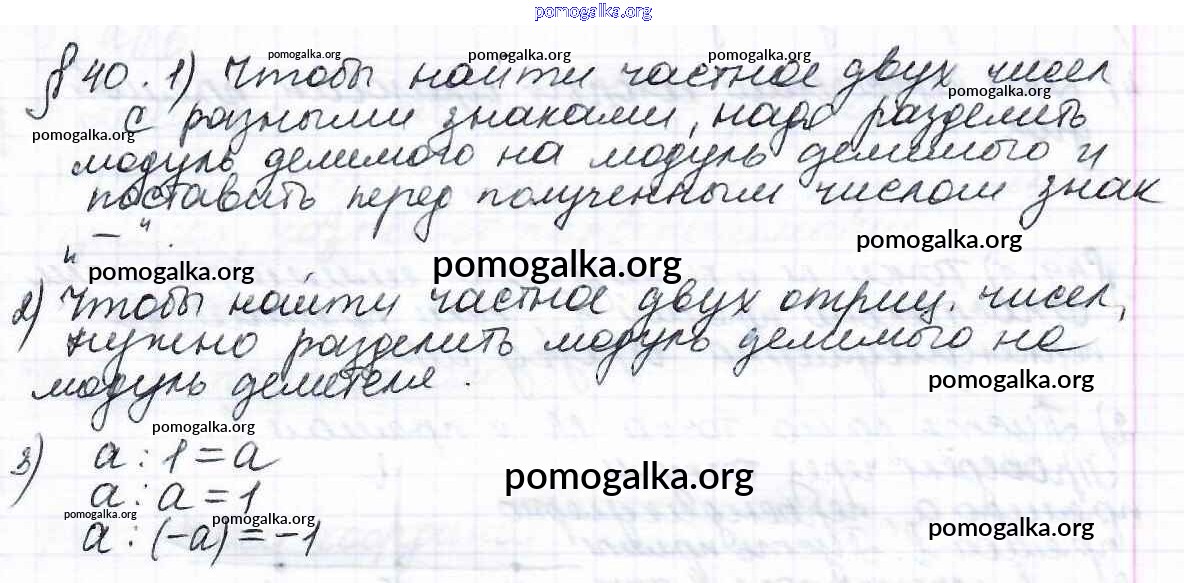 pomogalka.org
§ 40. 1) Чтобы найти частное двух чисел
с разными знаками, надо разделить
модуль делимого на модуль делимого и
поставить перед полученным числом знак
„—“.
2) Чтобы найти частное двух отриц. чисел,
нужно разделить модуль делимого на
модуль делителя.
3) a : 1 = a
a : a = 1
a : (-a) = -1
pomogalka.org
pomogalka.org
pomogalka.org
pomogalka.org
pomogalka.org
pomogalka.org
pomogalka.org
pomogalka.org
pomogalka.org
pomogalka.org
pomogalka.org
pomogalka.org
pomogalka.org
pomogalka.org